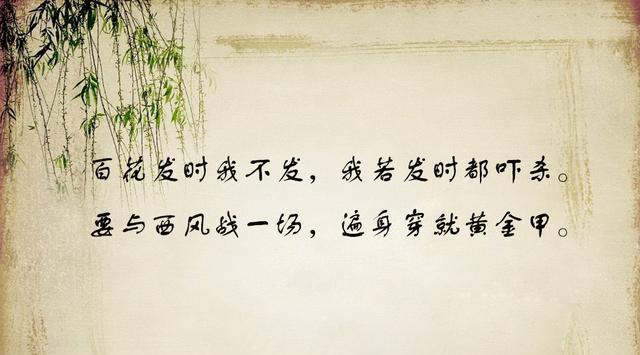 百花发时我不发，我若发时都吓杀。
要与西风战一场，遍身穿就黄金甲。